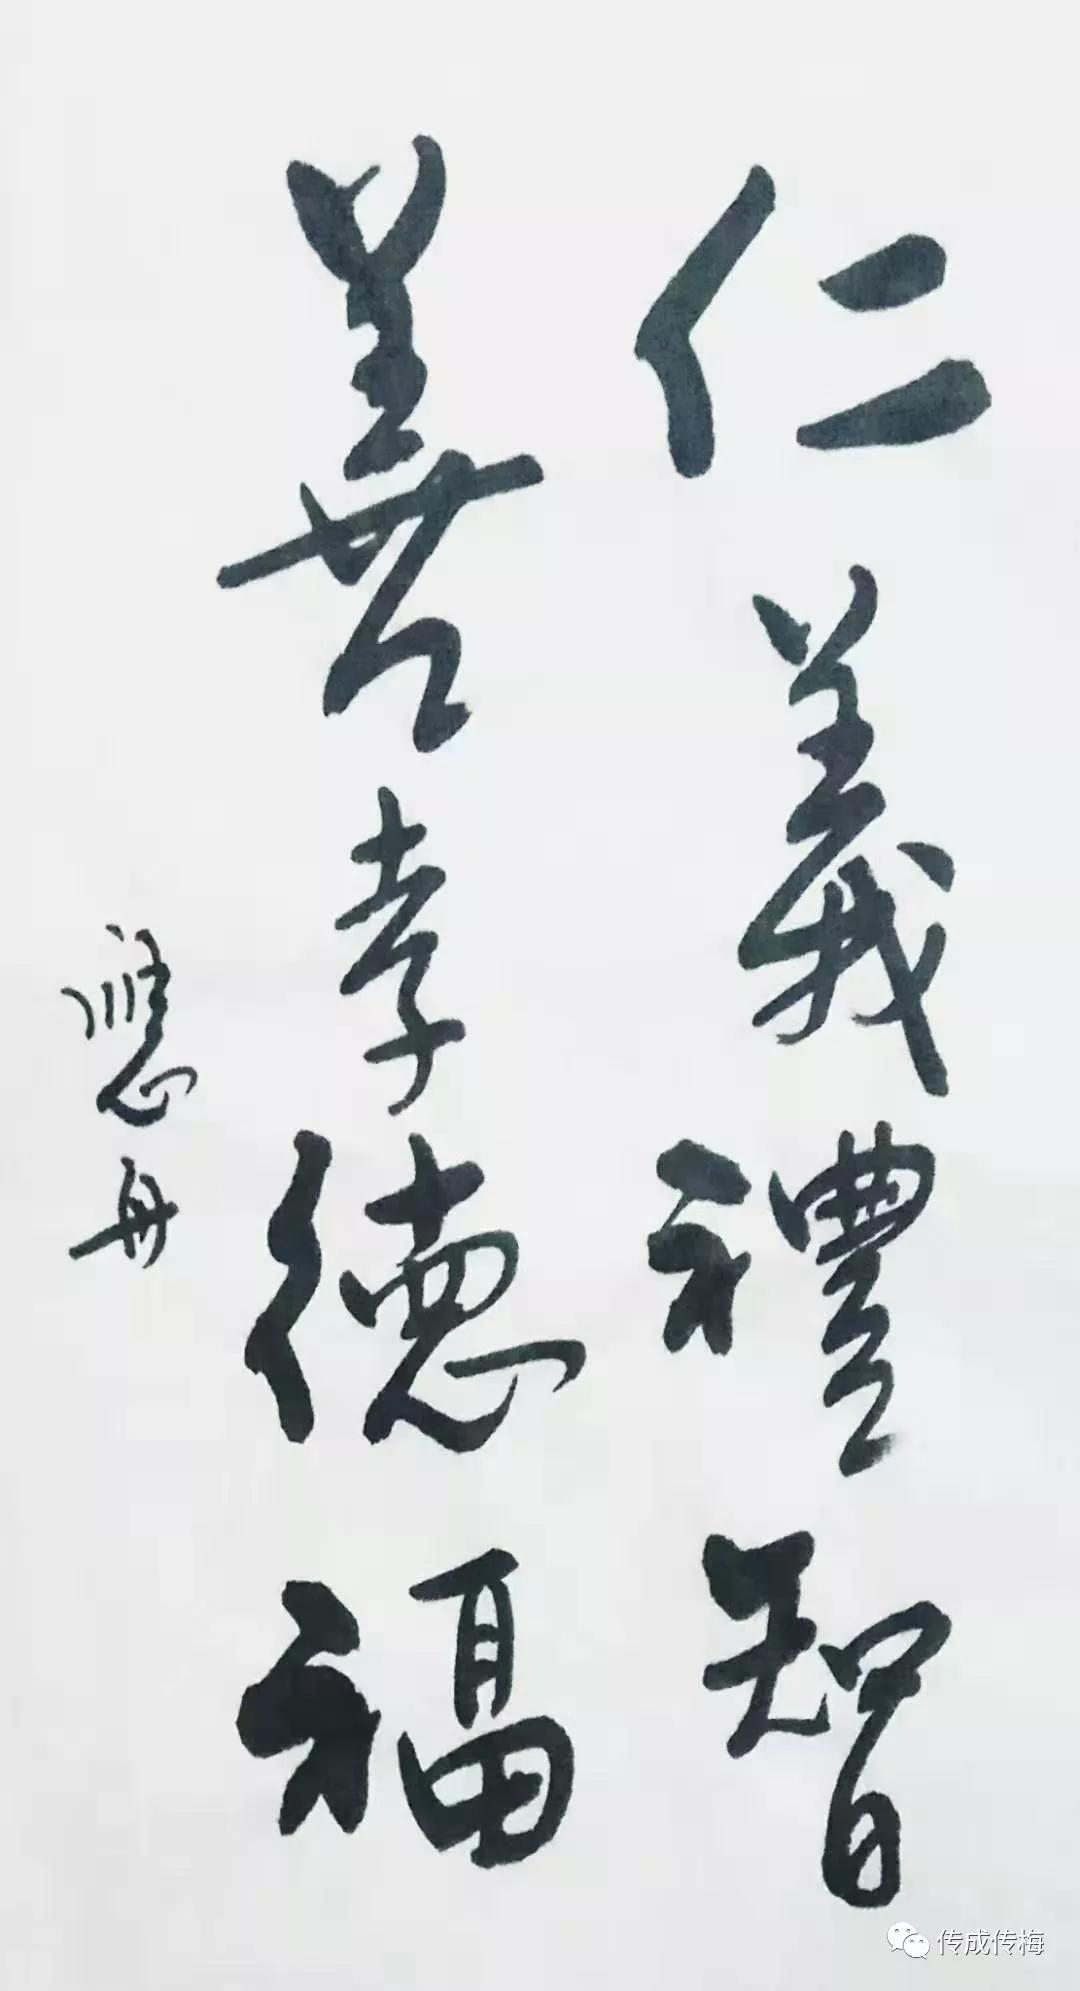 仁義禮智
善孝德福
應丹
传成传梅